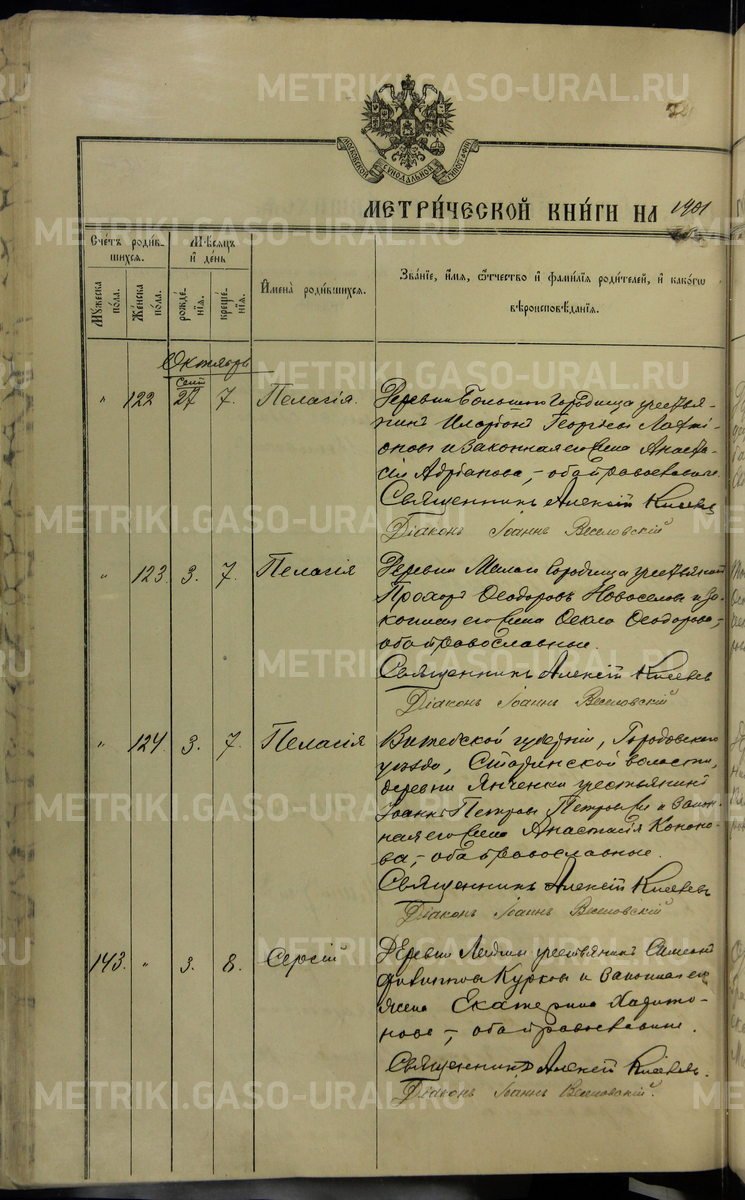 METRIKI.GASO-URAL.RU
МОСКОВСКОЙ СѴНОДАЛЬНОЙ ТИПОГРАФІИ
МЕТРИ́ЧЕСКОЙ КНИ́ГИ НА 1901
Сче́тъ роди́в-
шихся.
Мѣсяцъ
и де́нь
Мужеска по́ла.
Же́нска по́ла.
рожде́-
нїя.
креще́-
нїя.
Имена̀ роди́вшихся.
Зва́нїе, и́мя, ѻ҆́тчество и фами́лїя роди́телей, и како́гѡ
вѣроисповѣ́данїя.
Октябрь
" 122 Сент 27 7. Пелагія.
Деревни Большой Городища крестья-
нинъ Иларіонъ Георгіевъ
и законная его жена Анаста-
сія Адріанова, - оба православные.
Священникъ Алексій Киселевъ
Діаконъ Іоаннъ Веселовскій
" 123. 3. 7. Пелагія
Деревни Малой Городища крестьянинъ
Прохоръ Ѳеодоровъ Новоселовъ и за-
конная его жена Ѳекла Ѳеодорова, -
оба православные.
Священникъ Алексій Киселевъ
Діаконъ Іоаннъ Веселовскій
" 124. 3. 7. Пелагія
Витебской губерніи, Городокскаго
уѣзда, волости,
деревни Янченки крестьянинъ
Іоаннъ Петровъ и закон-
ная его жена Анастасія Кононо-
ва, - оба православные.
Священникъ Алексій Киселевъ
Діаконъ Іоаннъ Веселовскій
143. " 3. 8. Сергій
Деревни крестьянинъ Симеонъ
Курковъ и законная его
жена Екатерина Харито-
нова -, оба православные.
Священникъ Алексій Киселевъ.
Діаконъ Іоаннъ Веселовскій.